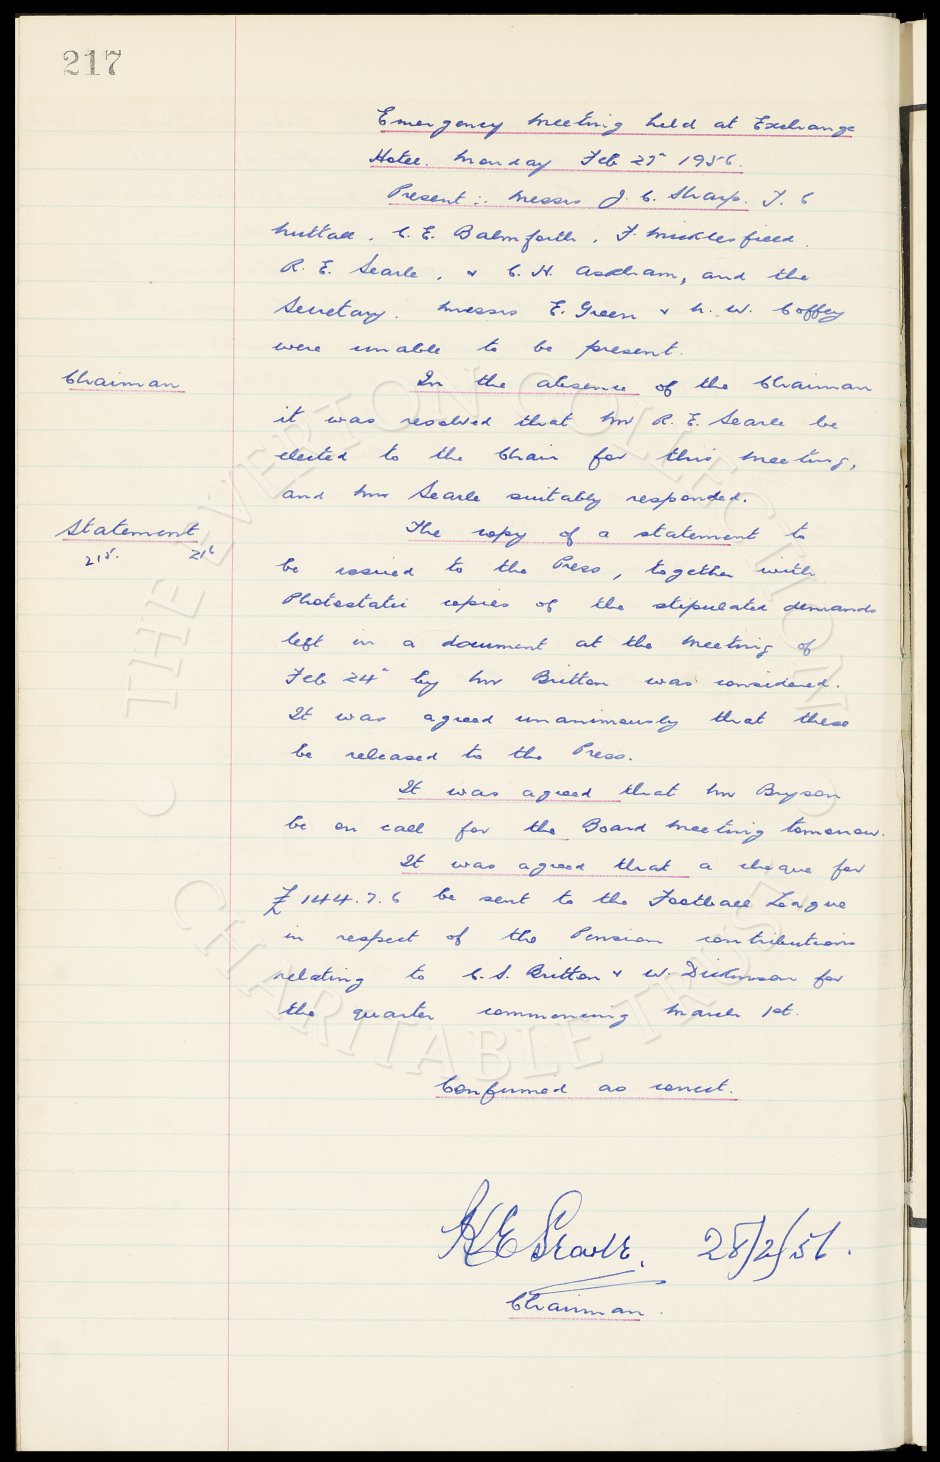 217
Emergency Meeting held at Exchange
Hotel. Monday Feb 27th 1956.
Present:. Messrs J. C. Sharp. T. C
Nuttall. C. E. Balmforth. F. Micklesfield.
R. E. Searle. & C. H. Askham, and the
Secretary. Messrs E. Green & N. W. Coffey
were unable to be present.
Chairman
In the absence of the Chairman
it was resolved that Mr R. E. Searle be
elected to the Chair for this Meeting,
and Mr Searle suitably responded.
Statement
215. 216
The copy of a statement to
be issued to the Press, together with
Photostatic copies of the stipulated demands
left in a document at the Meeting of
Feb 24th by Mr Britton was considered.
It was agreed unanimously that these
be released to the Press.
It was agreed that Mr Bryson
be on call for the Board Meeting tomorrow.
It was agreed that a cheque for
£144.7.6 be sent to the Football League
in respect of the Pension contributions
relating to C. S. Britton & W. Dickinson for
the quarter commencing March 1st.
Confirmed as correct.
R E Searle. 28/2/56.
Chairman.
THE EVERTON COLLECTION
CHARITABLE TRUST